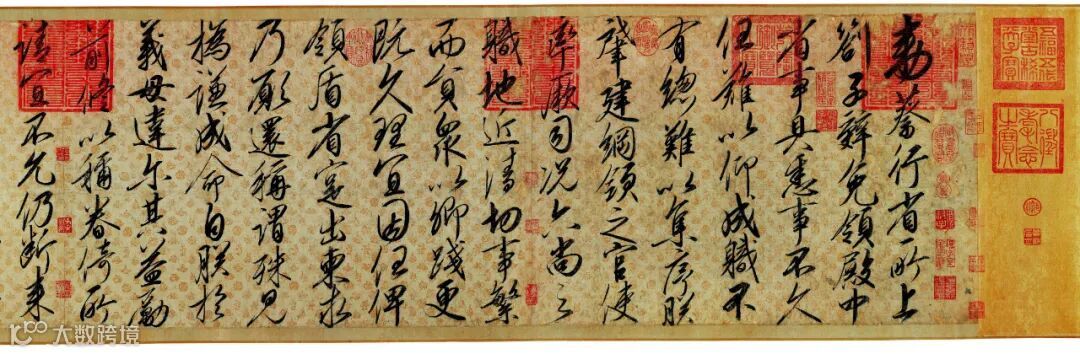 敕蔡行省所上
劄子辭免領殿中
省事具悉事不久
任難以仰成職不
有總難以集序朕
肇建綱領之官使
率厥司況六尚之
職地近清切事繁
而員眾以卿踐更
既久理宜因任俾
領盾省寔出東求
乃願還稱謂殊見
撝謙成命自朕於
義毋違爾其益勤
前修以稱眷倚所
請宜不允仍斷來
八徵耄念之寶
大数跨境